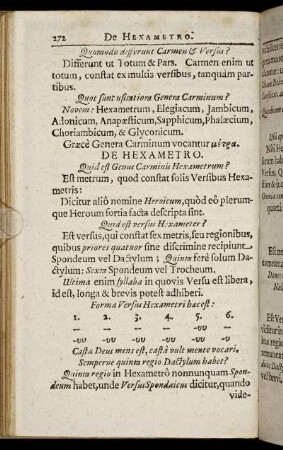 272 DE HEXAMETRO.
Quomodo differunt Carmen & Versus?
Differunt ut Totum & Pars. Carmen enim ut
totum, constat ex multis versibus, tanquàm par-
tibus.
Quot sunt usitatiora Genera Carminum?
Novem: Hexametrum, Elegiacum, Jambicum,
Adonicum, Anapæsticum, Sapphicum, Phalæcium,
Choriambicum, & Glyconicum.
Græcè Genera Carminum vocantur μέτρα.
DE HEXAMETRO.
Quid est Genus Carminis Hexametrum?
Est metrum, quod constat solis Versibus Hexa-
metris:
Dicitur aliô nomine Heroicum, quòd eô plerum-
que Heroum fortia facta descripta sint.
Quid est versus Hexameter?
Est versus, qui constat sex metris, seu regionibus,
quibus priores quatuor sine discrimine recipiunt
Spondeum vel Dactylum; Quinta ferè solum Da-
ctylum: Sexta Spondeum vel Trocheum.
Ultima enim syllaba in quovis Versu est libera,
id est, longa & brevis potest adhiberi.
Forma Versus Hexametri hæc est:
1. 2. 3. 4. 5. 6.
-- -- -- -- -υυ --
-υυ -υυ -υυ -υυ -- -υ
Casta Deus mens est, castâ vult mente vocari.
Semperne quinta regio Dactylum habet?
Quinta regio in Hexametrô nonnunquam Spon-
deum habet, unde Versus Spondaicus dicitur, quando
vide-